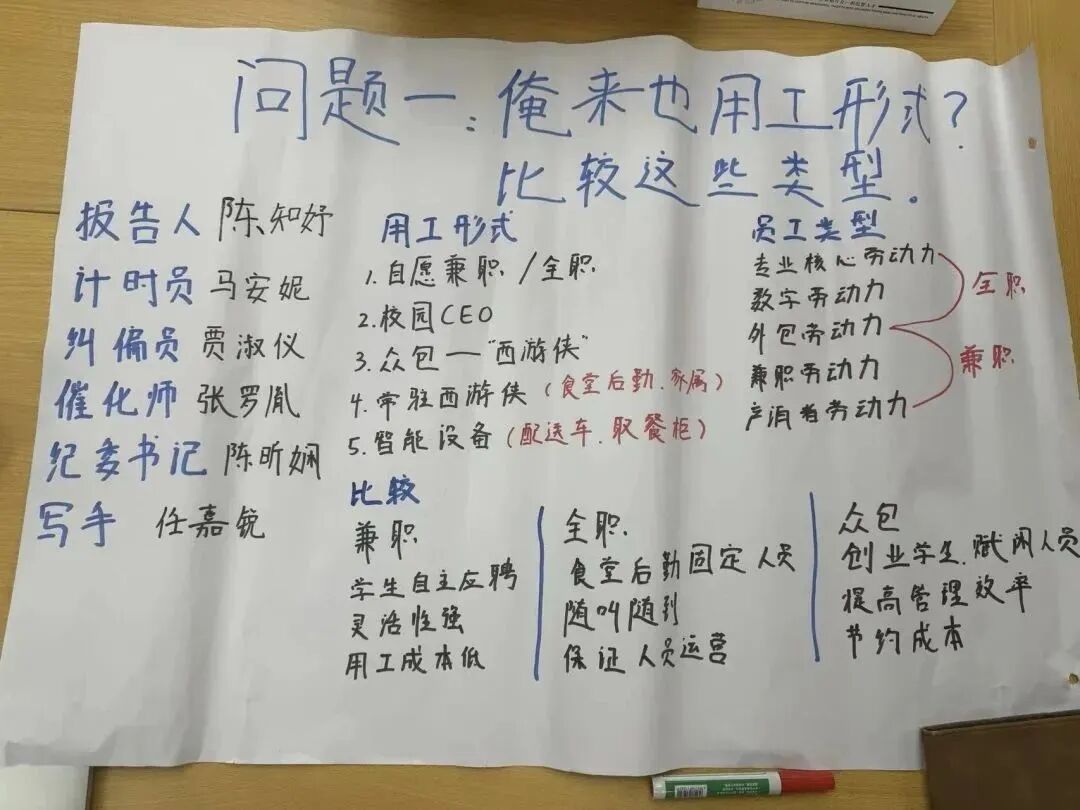 问题一:俺来也用工形式?
比较这些类型.
报告人 陈知妤
计时员 马安妮
纠偏员 贾淑仪
催化师 张罗胤
纪委书记 陈昕娴
写手 任嘉锐
用工形式
1.自愿兼职/全职
2.校园CEO
3.众包—“西游侠”
4.常驻西游侠(食堂后勤.家属)
5.智能设备(配送车.取餐柜)
员工类型
专业核心劳动力
数字劳动力
外包劳动力
兼职劳动力
产消者劳动力
全职
兼职
比较
兼职
学生自主应聘
灵活性强
用工成本低
全职
食堂后勤固定人员
随叫随到
保证人员运营
众包
创业学生.赋闲人员
提高管理效率
节约成本